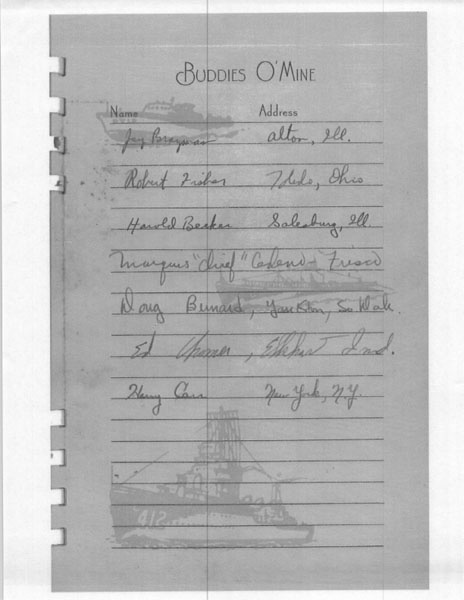 BUDDIES O'MINE
Name Address
Jay Alton, Ill.
Robert Fisher Toledo, Ohio
Harold Becker Galesburg, Ill.
Marquis "Chief" Cedeno - Frisco
Doug Bernard, Yankton, So Dak.
Ed , Elkhart Ind.
Henry Carr New York, N.Y.
412